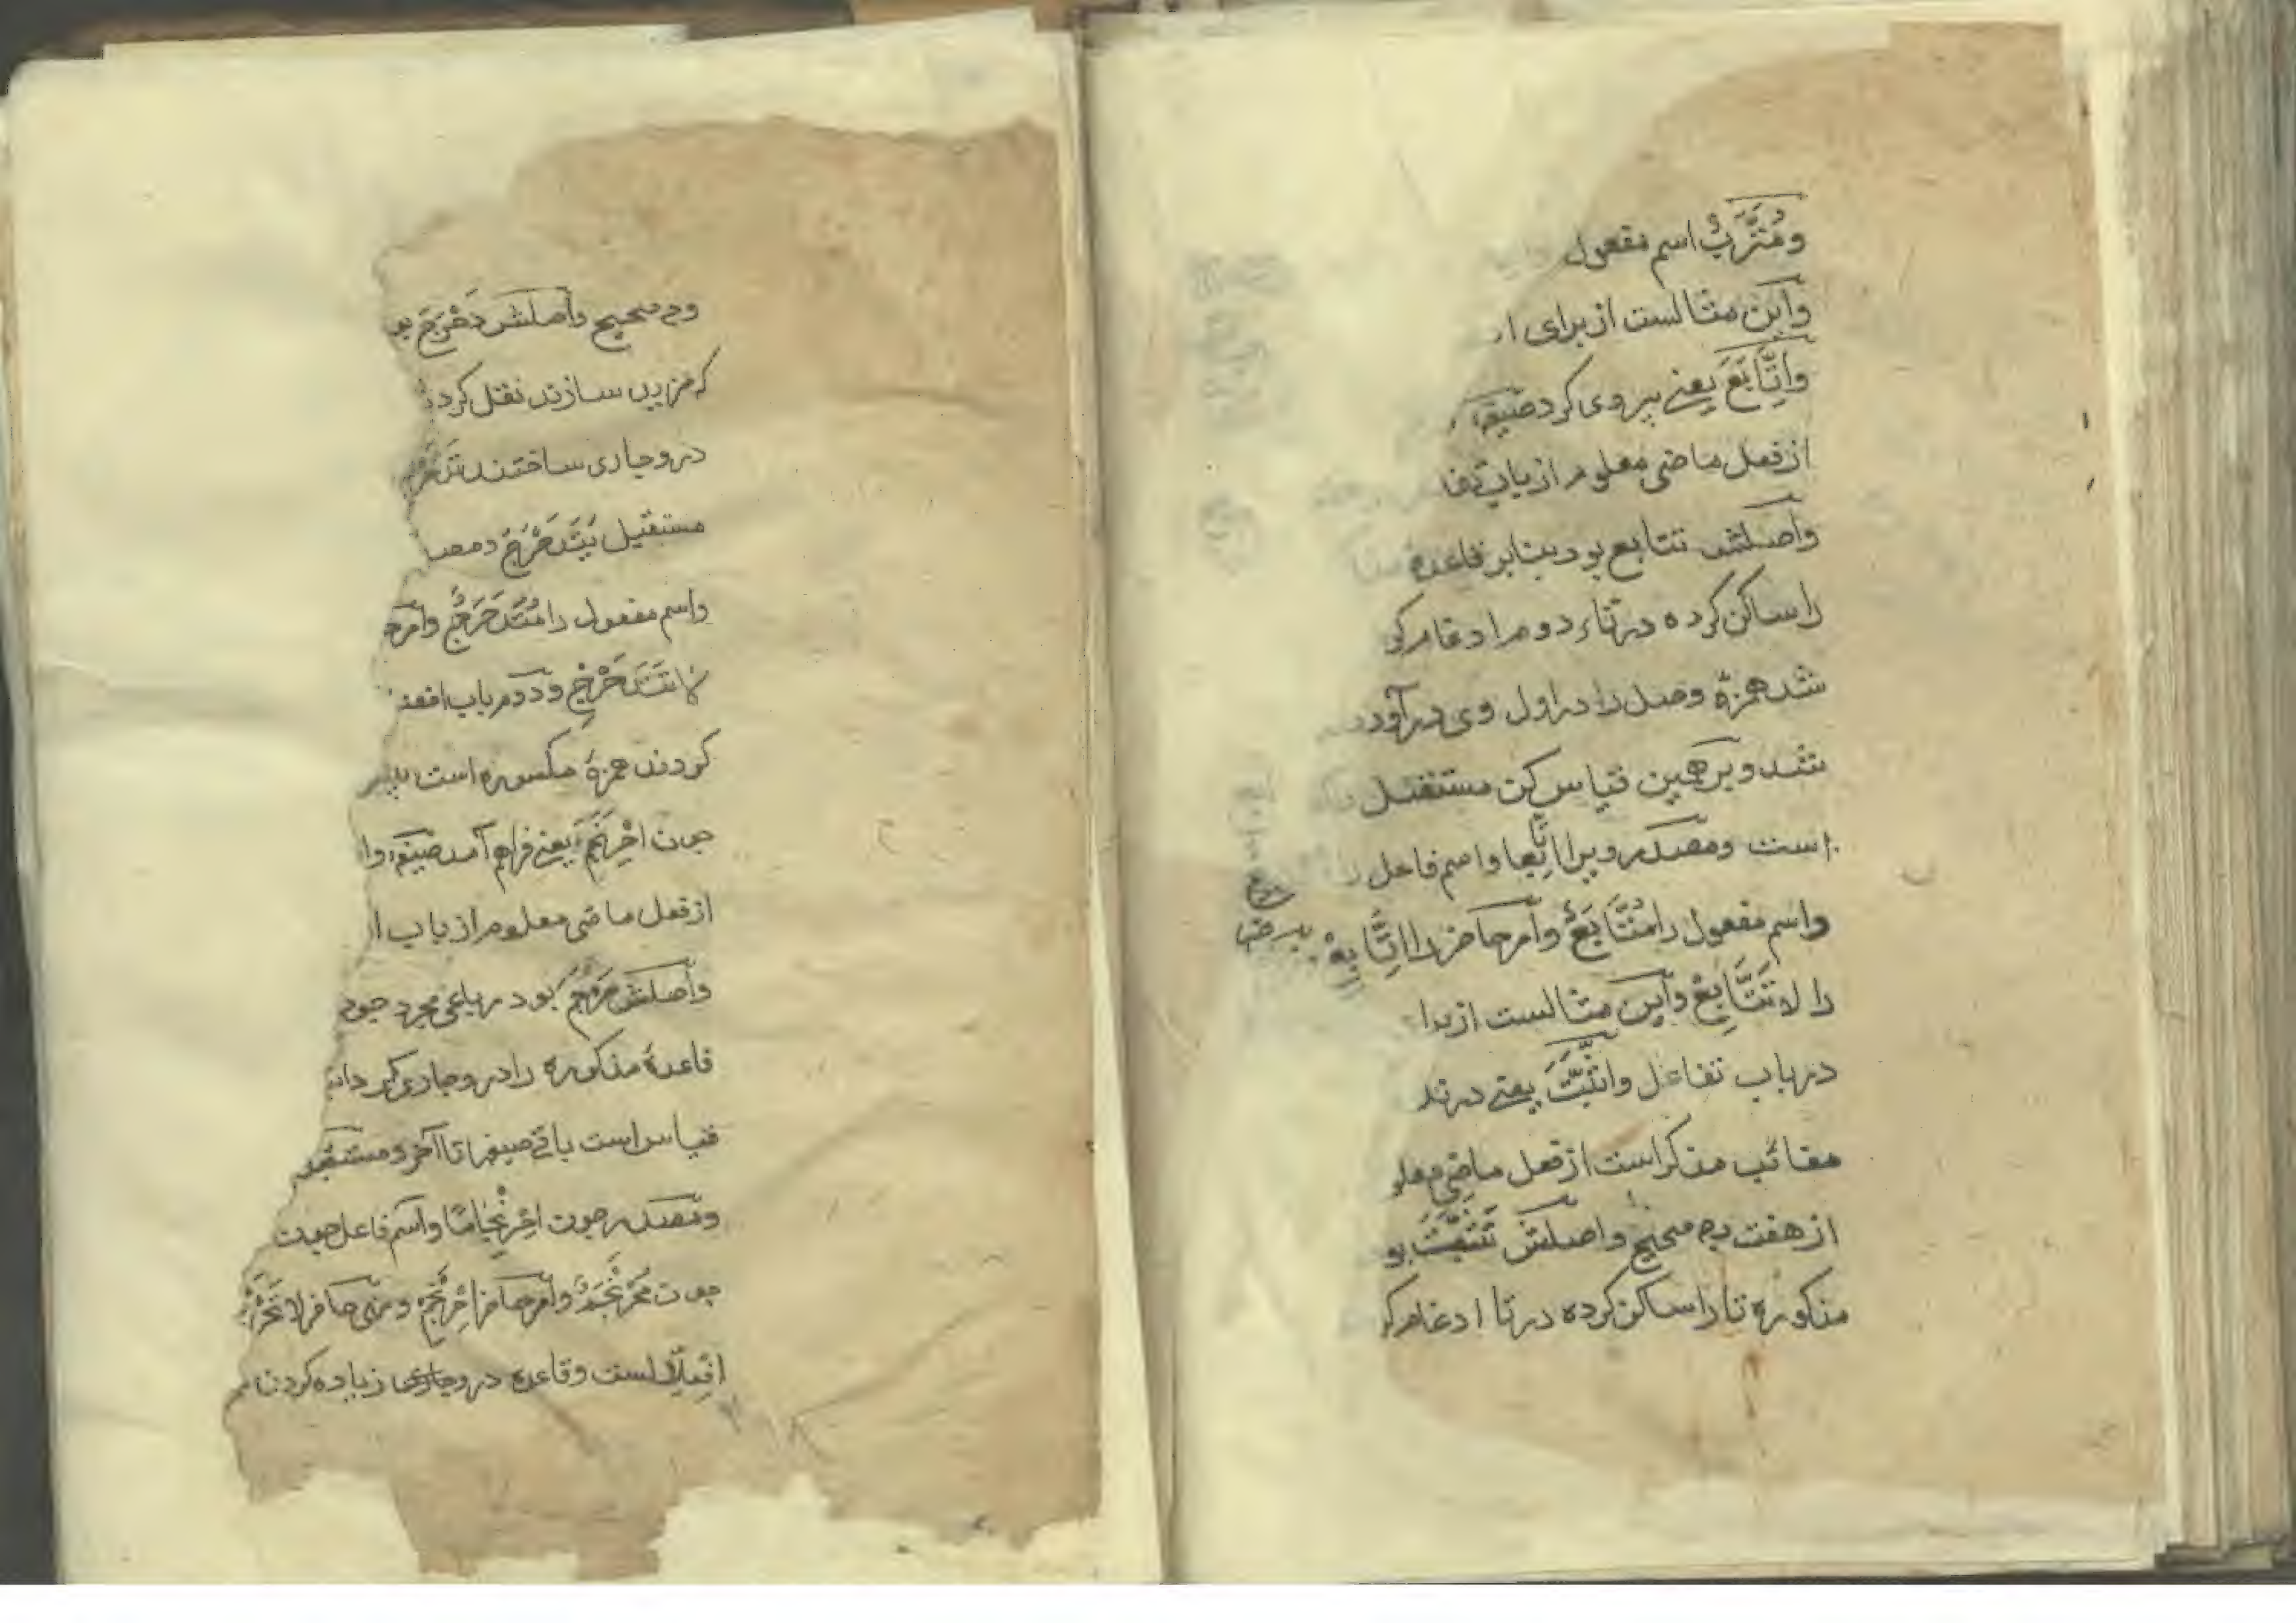 ومُتَّرَّبٌ اسم مفعول
وآین مثالست از برای
واِتَّابَعَ یعنی پیروی کرد صیغهٔ
از فعل ماضی معلوم از باب تفا
واصلش تتابع بود بنابر قاعدهٔ
را ساکن کرده در تاء دوم ادغام کر
شد همزهٔ وصل را در اول وی درآورد
شد و برهمین قیاس کن مستقبل
است ومصدر ویرا اِتّابعا واسم فاعل را
واسم مفعول را مُتَّابَعٌ وآمر حاضر را اِتَّابِعْ
را لا تَتَّابِعْ وآین مثالست از برا
در باب تفاعل واتَّبَّتَ یعنی در
مغائب مذکر است از فعل ماضی معلو
از هفت وجه صحیح واصلش تَتَبَّتَ بو
مذکوره تا را ساکن کرده در تا ادغام کر
وجه صحیح واصلش دَحْرَجَ بو
که مزید سازند نقل کردند
درو جاری ساختند تَدَحْرَ
مستقبل یَتَدَحْرَجُ ومصد
واسم مفعول را مُتَدَحْرَجٌ وآمر
لا تَتَدَحْرَجْ ودوم باب افعن
کردن همزهٔ مکسوره است
چون اِحْرَنْجَمَ یعنی فراهم آمد صیغهٔ وا
از فعل ماضی معلوم از باب ا
واصلش حَرْجَمَ بود رباعی مجرد چون
قاعدهٔ مذکوره را درو جاری کر
قیاس است باقی صیغها تا آخر ومستقبل
ومصدر چون اِحْرِنْجَامًا واسم فاعل چون
چون مُحْرَنْجَمٌ وآمر حاضر اِحْرَنْجِمْ ونهی حاضر لا تَحْرَ
اِفْعِلَّالست وقاعده درو جاری زیاده کردن